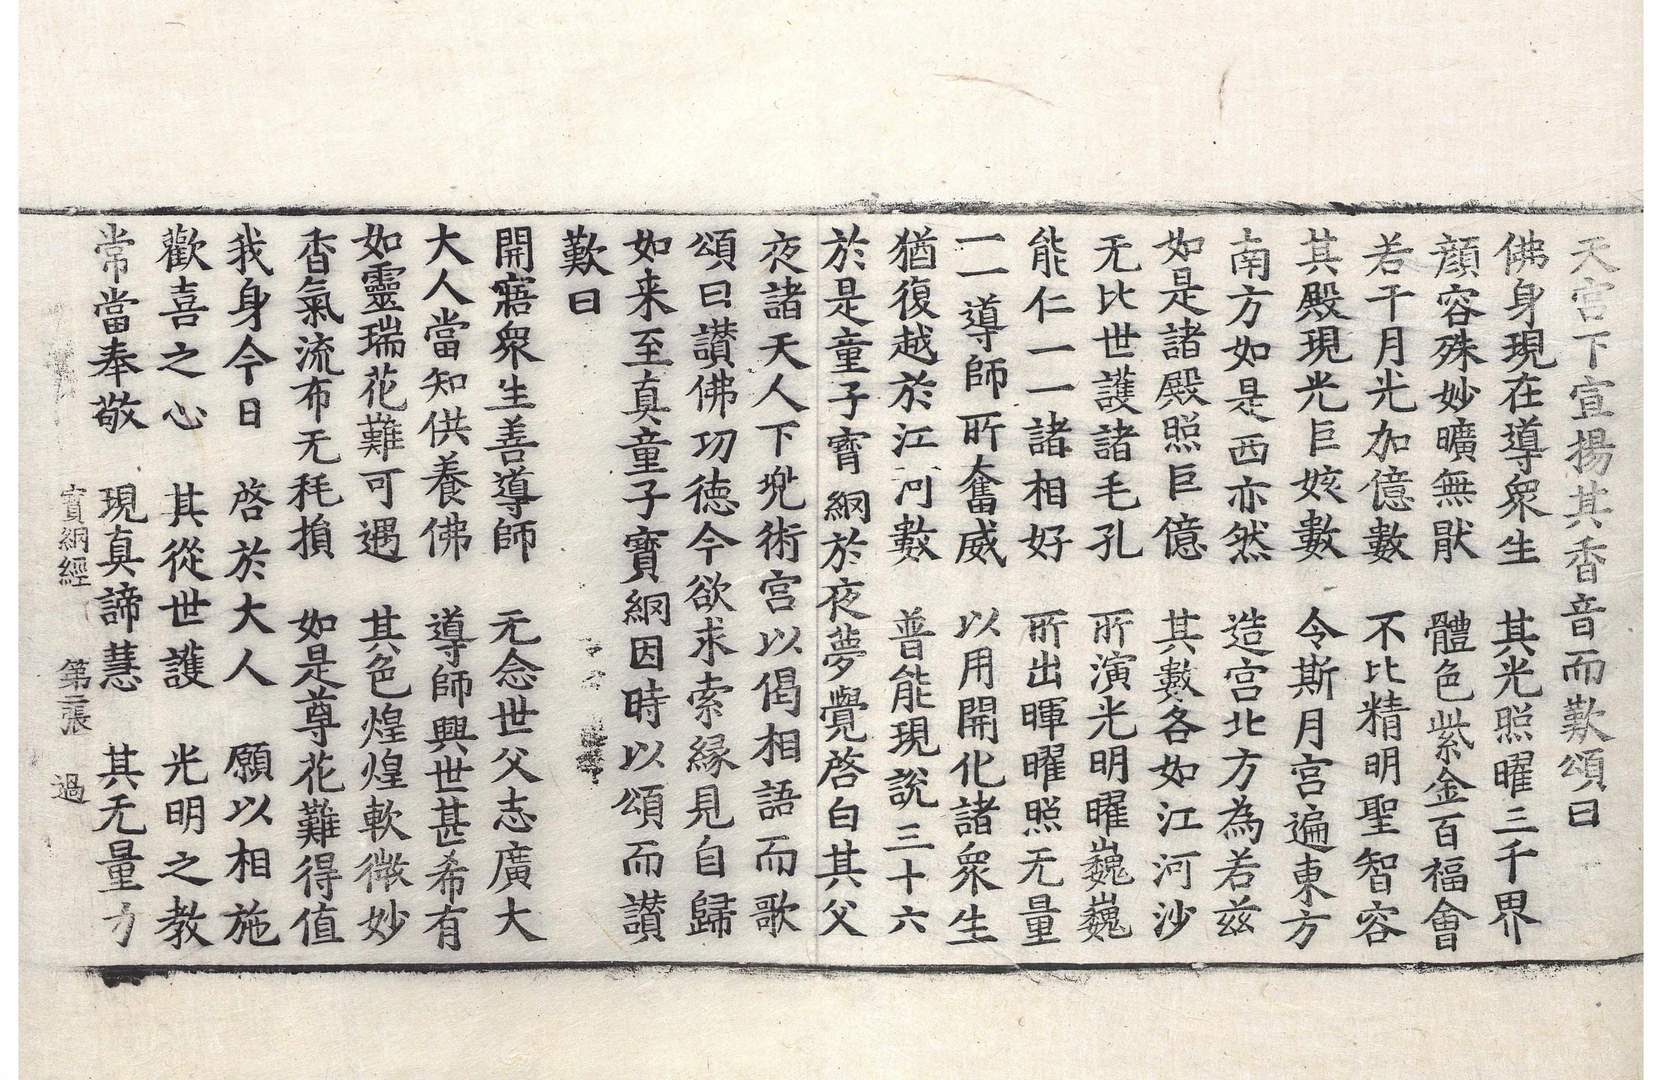 天宮下宣揚其香音而歎頌曰
佛身現在導衆生　其光照曜三千界
顏容殊妙曠無猒　體色紫金百福會
若千月光加億數　不比精明聖智容
其殿現光巨姟數　令斯月宮遍東方
南方如是西亦然　造宮北方為若茲
如是諸殿照巨億　其數各如江河沙
无比世護諸毛孔　所演光明曜巍巍
能仁一一諸相好　所出暉曜照无量
一一導師所奮威　以用開化諸衆生
猶復越於江河數　普能現說三十六
於是童子寶網於夜夢覺啓白其父
夜諸天人下兜術宮以偈相語而歌
頌曰讃佛功徳今欲求索縁見自歸
如来至真童子寶網因時以頌而讃
歎曰
開寤衆生善導師　无念世父志廣大
大人當知供養佛　導師興世甚希有
如靈瑞花難可遇　其色煌煌軟微妙
香氣流布无秏損　如是尊花難得值
我身今日　啓於大人　願以相施
歡喜之心　其從世護　光明之教
常當奉敬　現真諦慧　其无量力
寶網經　第二張　過